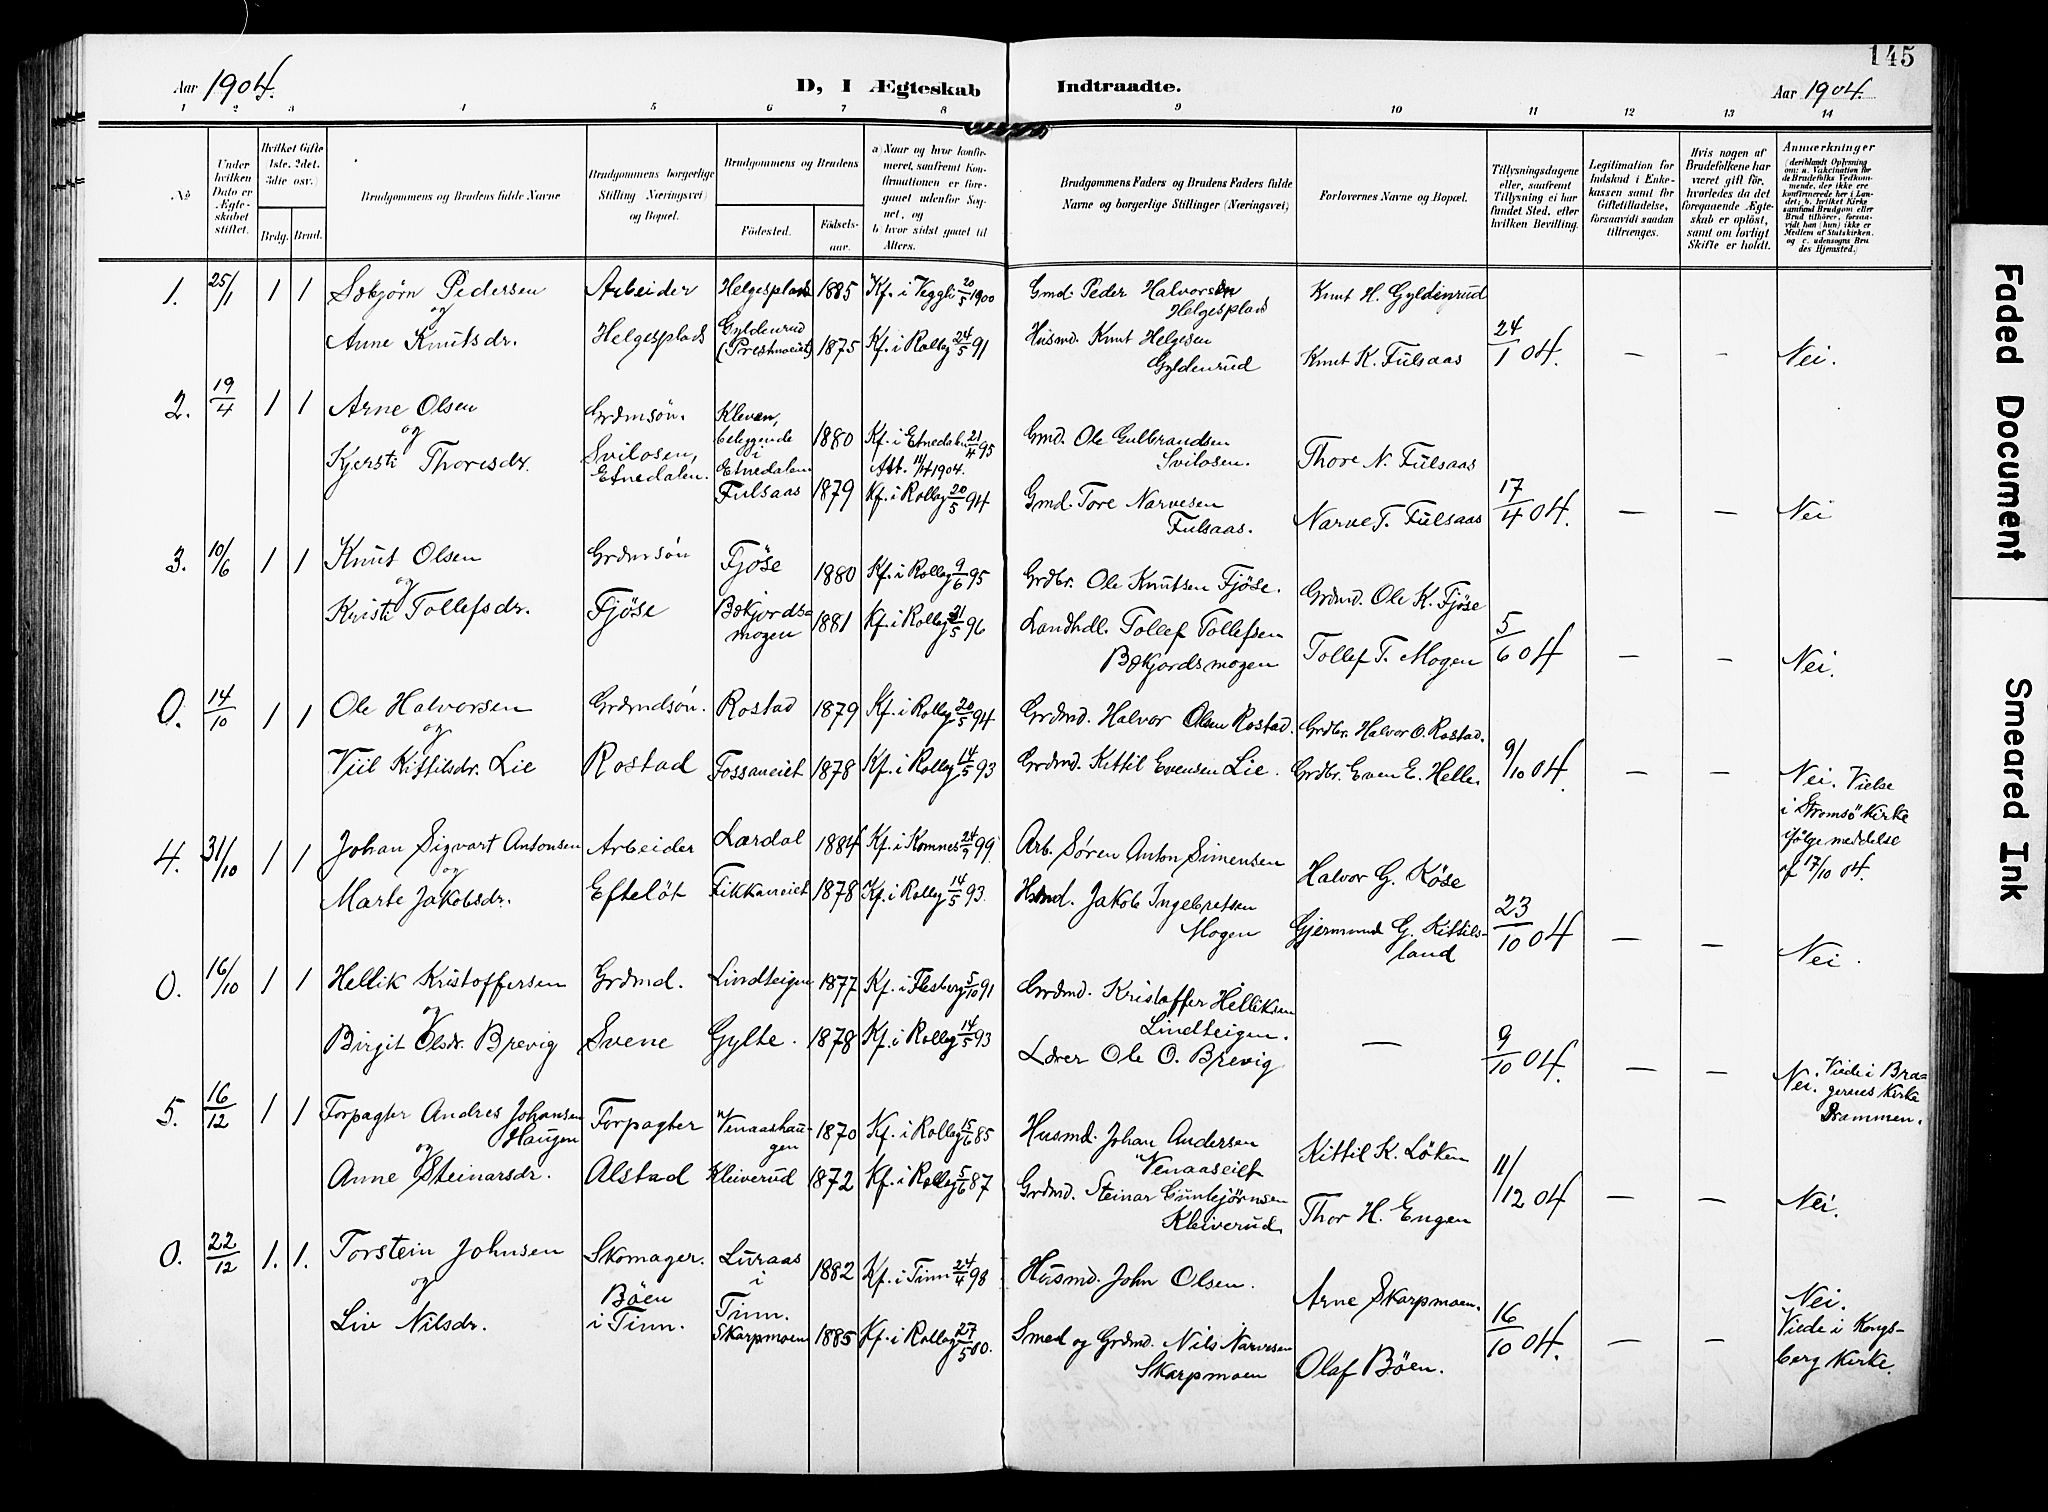 145
Aar 1904.
D, I Ægteskab Indtraadte.
Aar 1904.
1 2 3 4 5 6 7 8 9 10 11 12 13 14
No
Under hvilken Dato er Ægteskabet stiftet.
Hvilket Gifte 1ste. 2det. 3die osv.)
Brdg. Brud.
Brudgommens og Brudens fulde Navne
Brudgommens borgerlige Stilling (Næringsvei) og Bopæl.
Brudgommens og Brudens
Fødested.
Fødselsaar.
a) Naar og hvor konfirmeret, saafremt Konfirmationen er foregaaet udenfor Sognet, og
b. hvor sidst gaaet til Alters.
Brudgommens Faders og Brudens Faders fulde Navne og borgerlige Stillinger (Næringsvei)
Forlovernes Navne og Bopæl.
Tillysningsdagene eller, saafremt Tillysning ei har fundet Sted. efter hvilken Bevilling.
Legitimation for Indskud i Enkekassen samt for Giftetilladelse, forsaavidt saadan tiltrænges.
Hvis nogen af Brudefolkene har været gift før, hvorledes da det foregaaende Ægteskab er opløst, samt om lovligt Skifte er holdt.
Anmærkninger (deriblandt Oplysning om: a. Vakcination for de Brudefolks Vedkommende, der ikke ere konfirmerede her i Landet; b. hvilket Kirkesamfund Brudgom eller Brud tilhører, forsaavidt han (hun) ikke er Medlem af Statskirken. og c. udensogns Brudes Hjemsted.)
1. 25/1 1 1 Sebjörn Pedersen Arbeider Helgesplads 1885 Kf. i Veggli 20/5 1900 Gmd. Peder Halvorsen Helgesplads Knut H. Gyldenrud
og
Anne Knutsdr. Helgesplads Gyldenrud (Prestmoeiet) 1875 Kf. i Rollag 24/5 91 Husmd. Knut Helgesen Gyldenrud Knut K. Fulsaas 24/1 04. — — Nei.
2. 19/4 1 1 Arne Olsen Grdmsön. Kleven, beliggende i Etnedalen 1880 Kf. i Etnedalen 21/4 95 Att. 11/4 1904. Gmd. Ole Gulbrandsen Svilosen. Thore N. Fulsaas
og
Kjersti Thoresdr. Svilosen, Etnedalen. Fulsaas 1879 Kf. i Rollag 20/5 94 Gmd. Tore Narvesen Fulsaas. Narve T. Fulsaas 17/4 04. — — Nei
3. 10/6 1 1 Knut Olsen Grdmsön Fjöse 1880 Kf. i Rollag 9/6 95 Grdbr. Ole Knutsen Fjöse. Grdmd. Ole K. Fjöse
og
Kristi Tollefsdr. Fjöse Bekjordsmogen 1881 Kf. i Rollag 31/5 96 Landhdl. Tollef Tollefsen Bekjordsmogen Tollef T. Mogen 5/6 04 — — Nei.
0. 14/10 1 1 Ole Halvorsen Grdmdsön. Rostad 1879 Kf. i Rollag 20/5 94 Grdmd. Halvor Olsen Rostad. Grdbr. Halvor O. Rostad.
og
Viil Kittilsdr. Lie Rostad Fossaneiet 1878 Kf. i Rollag 14/5 93 Grdmd. Kittil Evensen Lie. Grdbr. Even E. Helle. 9/10 04. — — Nei. Vielse i Strömsö Kirke ifölge meddelse af 17/10 04.
4. 31/10 1 1 Johan Sigvart Antonsen Arbeider Lærdal 1884 Kf. i Komnes 24/9 99. Arb. Sören Anton Simensen Halvor G. Köse
og
Marte Jakobsdr. Efteløt Fikkaneiet 1878 Kf. i Rollag 14/5 93. Hsmd. Jakob Ingebretsen Mogen Gjermund G. Kittilsland 23/10 04 — — Nei.
0. 16/10 1 1 Hellik Kristoffersen Grdmd. Lindteigen 1877 Kf. i Flesberg 5/10 91 Grdmd. Kristoffer Helliksen Lindteigen.
og
Birgit Olsdr. Brevig Svene Gylte. 1878 Kf. i Rollag 14/5 93 Lærer Ole O. Brevig — 9/10 04. — — Nei. Viede i Bragernes Kirke Drammen.
5. 16/12 1 1 Forpagter Andres Johansen Haugen Forpagter Venaashaugen 1870 Kf. i Rollag 15/6 85 Husmd. Johan Andersen Venaaseiet Kittil K. Löken
og
Anne Steinarsdr. Alstad Kleiverud 1872 Kf. i Rollag 5/6 87 Grdmd. Steinar Gunbjörnsen Kleiverud. Thor H. Engen 11/12 04 — — Nei.
0. 22/12 1. 1. Torstein Johnsen Skomager. Luraas i Tinn. 1882 Kf. i Tinn 24/4 98 Husmd. John Olsen. Arne Skarpmoen.
og
Liv Nilsdr. Böen i Tinn. Skarpmoen 1885 Kf. i Rollag 27/5 00. Smed og Grdmd. Nils Narvesen Skarpmoen Olaf Böen. 16/10 04. — — Nei. Viede i Kongsberg Kirke.
Faded Document
Smeared Ink